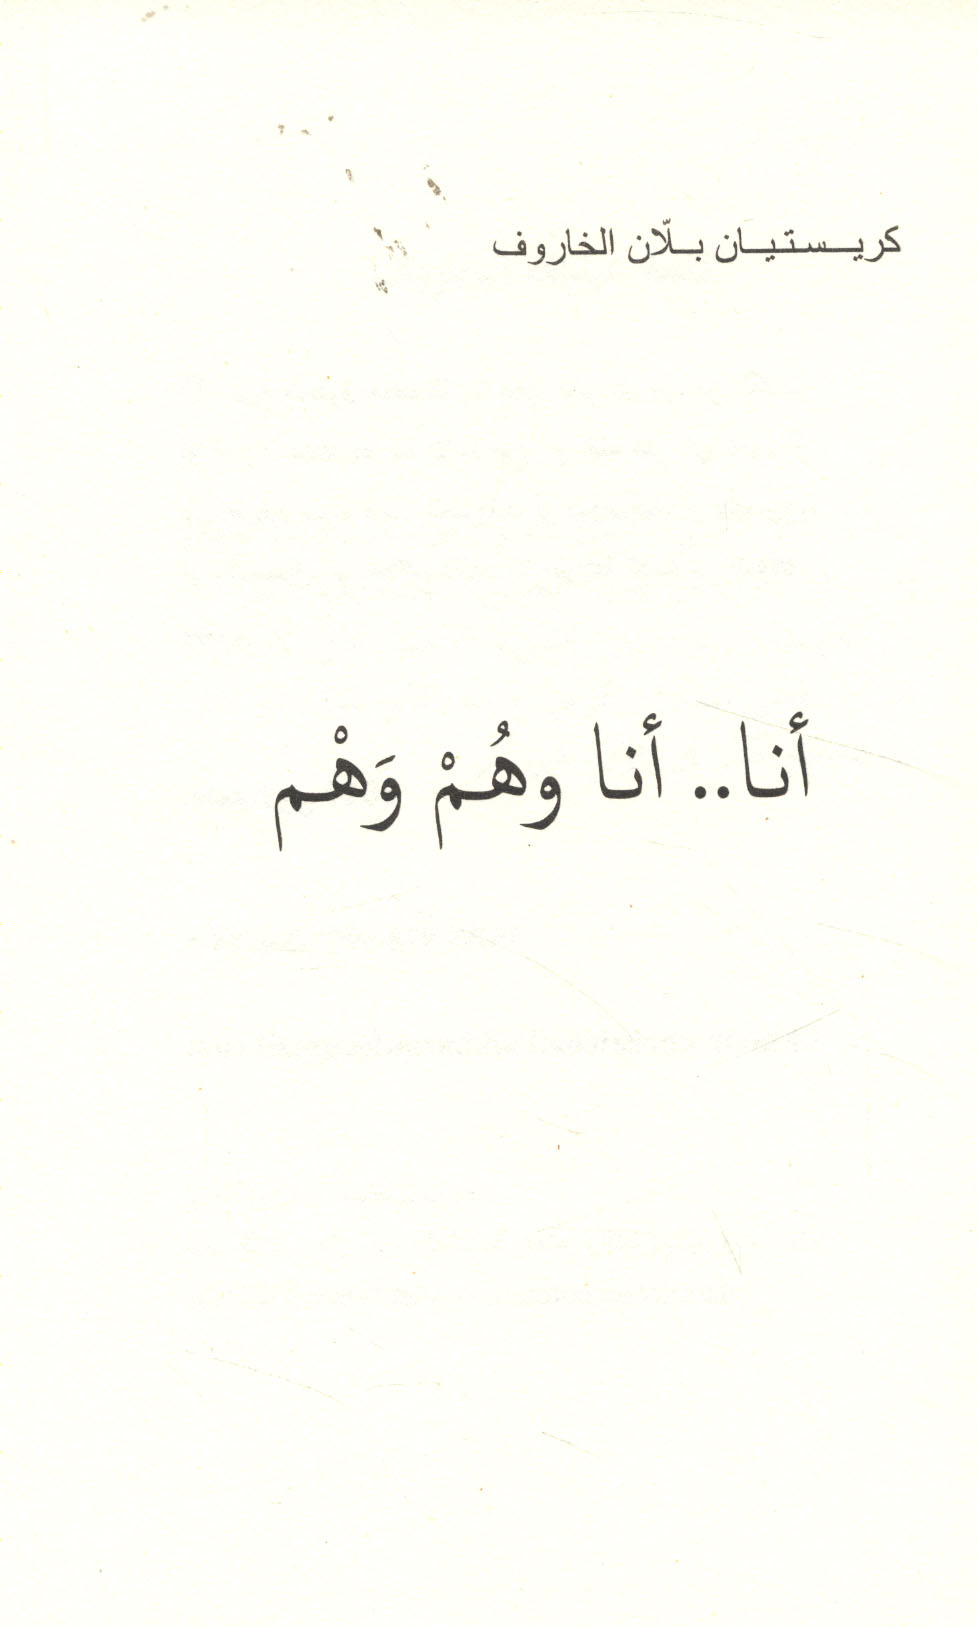 كريستيان بلّان الخاروف
أنا.. أنا وهُمْ وَهْم